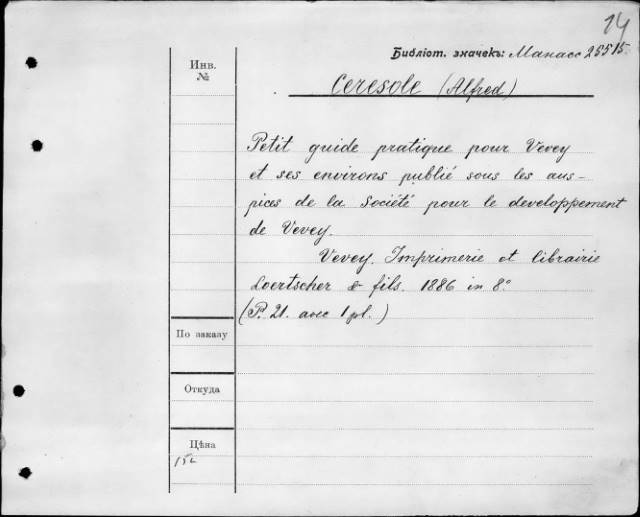 14
Библіот. значекъ: Манасс 25515.
Инв.
№
Ceresole (Alfred)
Petit guide pratique pour Vevey
et ses environs publié sous les aus-
pices de la Société pour le developpement
de Vevey.
Vevey. Imprimerie et librairie
Loertscher & fils. 1886 in 8º
(P. 21. avec 1 pl.)
По заказу
Откуда
Цѣна